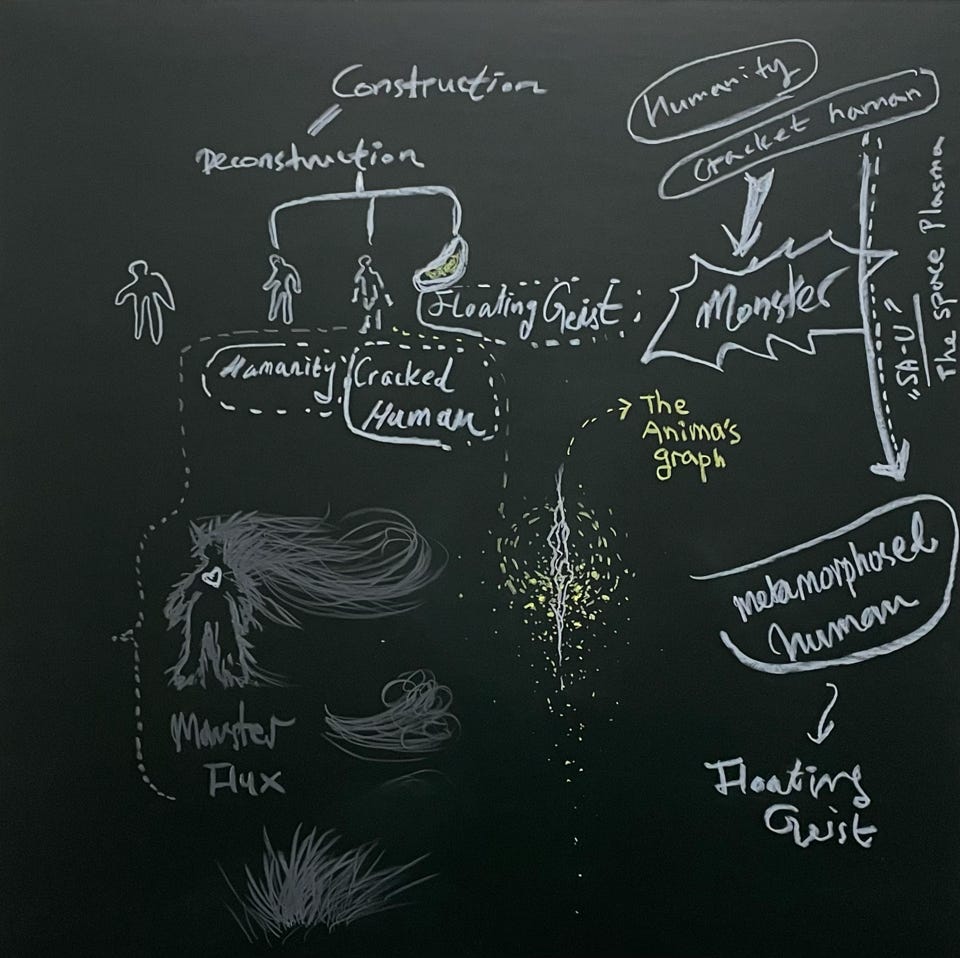 Construction
Deconstruction
Floating Geist
Humanity
Cracked
Human
Monster
Flux
The
Anima's
graph
Humanity
cracket human
Monster
"SA-U"
The space Plasma
metamorphosed
human
Floating
Geist